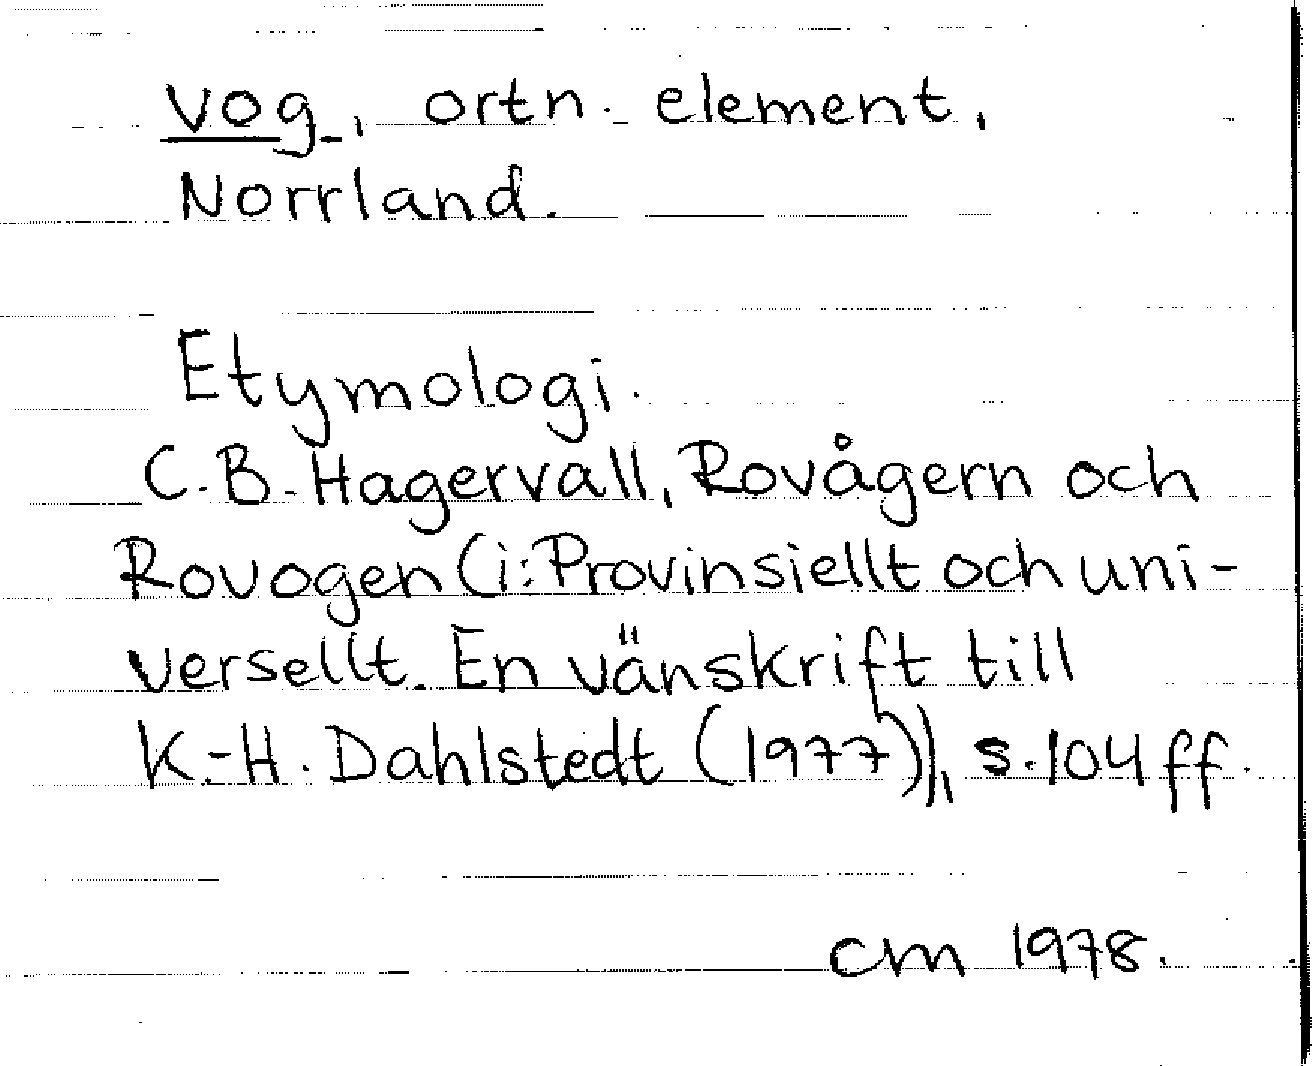 vog, ortn. element,
Norrland.
Etymologi.
C.B. Hagervall, Rovågern och
Rovogen (i: Provinsiellt och uni-
versellt. En vänskrift till
K.-H. Dahlstedt (1977)), s. 104 ff.
cm 1978.